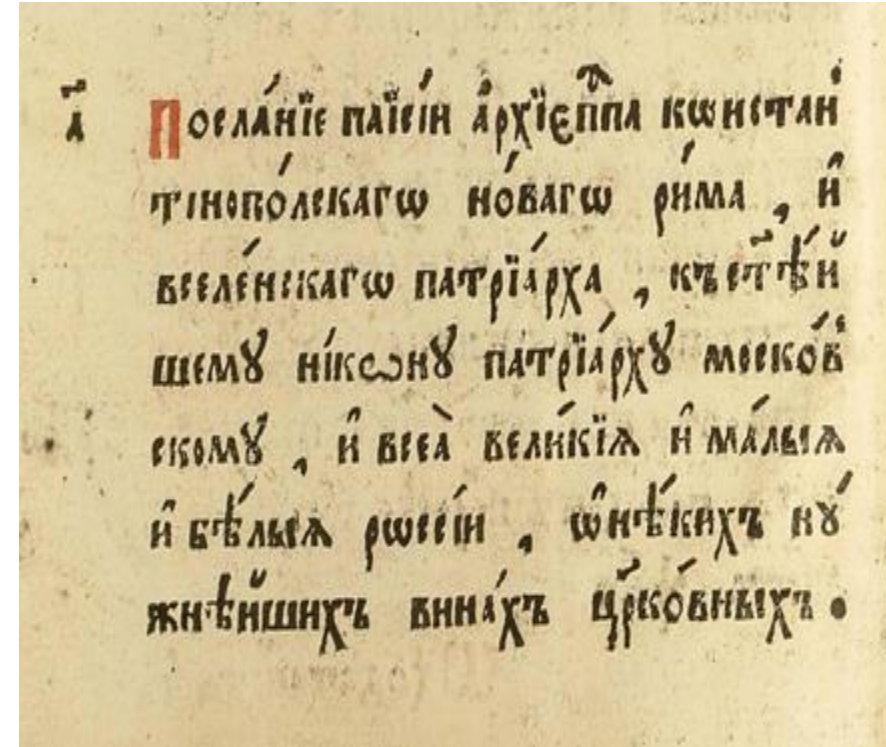 а҃ Посла́нїе паїсі́и а҆рхїепⷭ҇па кѡнстан
тінопо́лскагѡ но́вагѡ ри́ма , и҆
вселе́нскагѡ патрїа́рха , къ ст҃ѣ́й
шемꙋ ні́кѡнꙋ патрїа́рхꙋ моско́в
скомꙋ , и҆ всеѧ̀ вели́кїѧ и҆ ма́лыѧ
и҆ бѣ́лыѧ рѡссі́и , ѡ҆нѣ́кихъ нꙋ́
жнѣ́йшихъ вина́хъ цр҃ко́вныхъ .